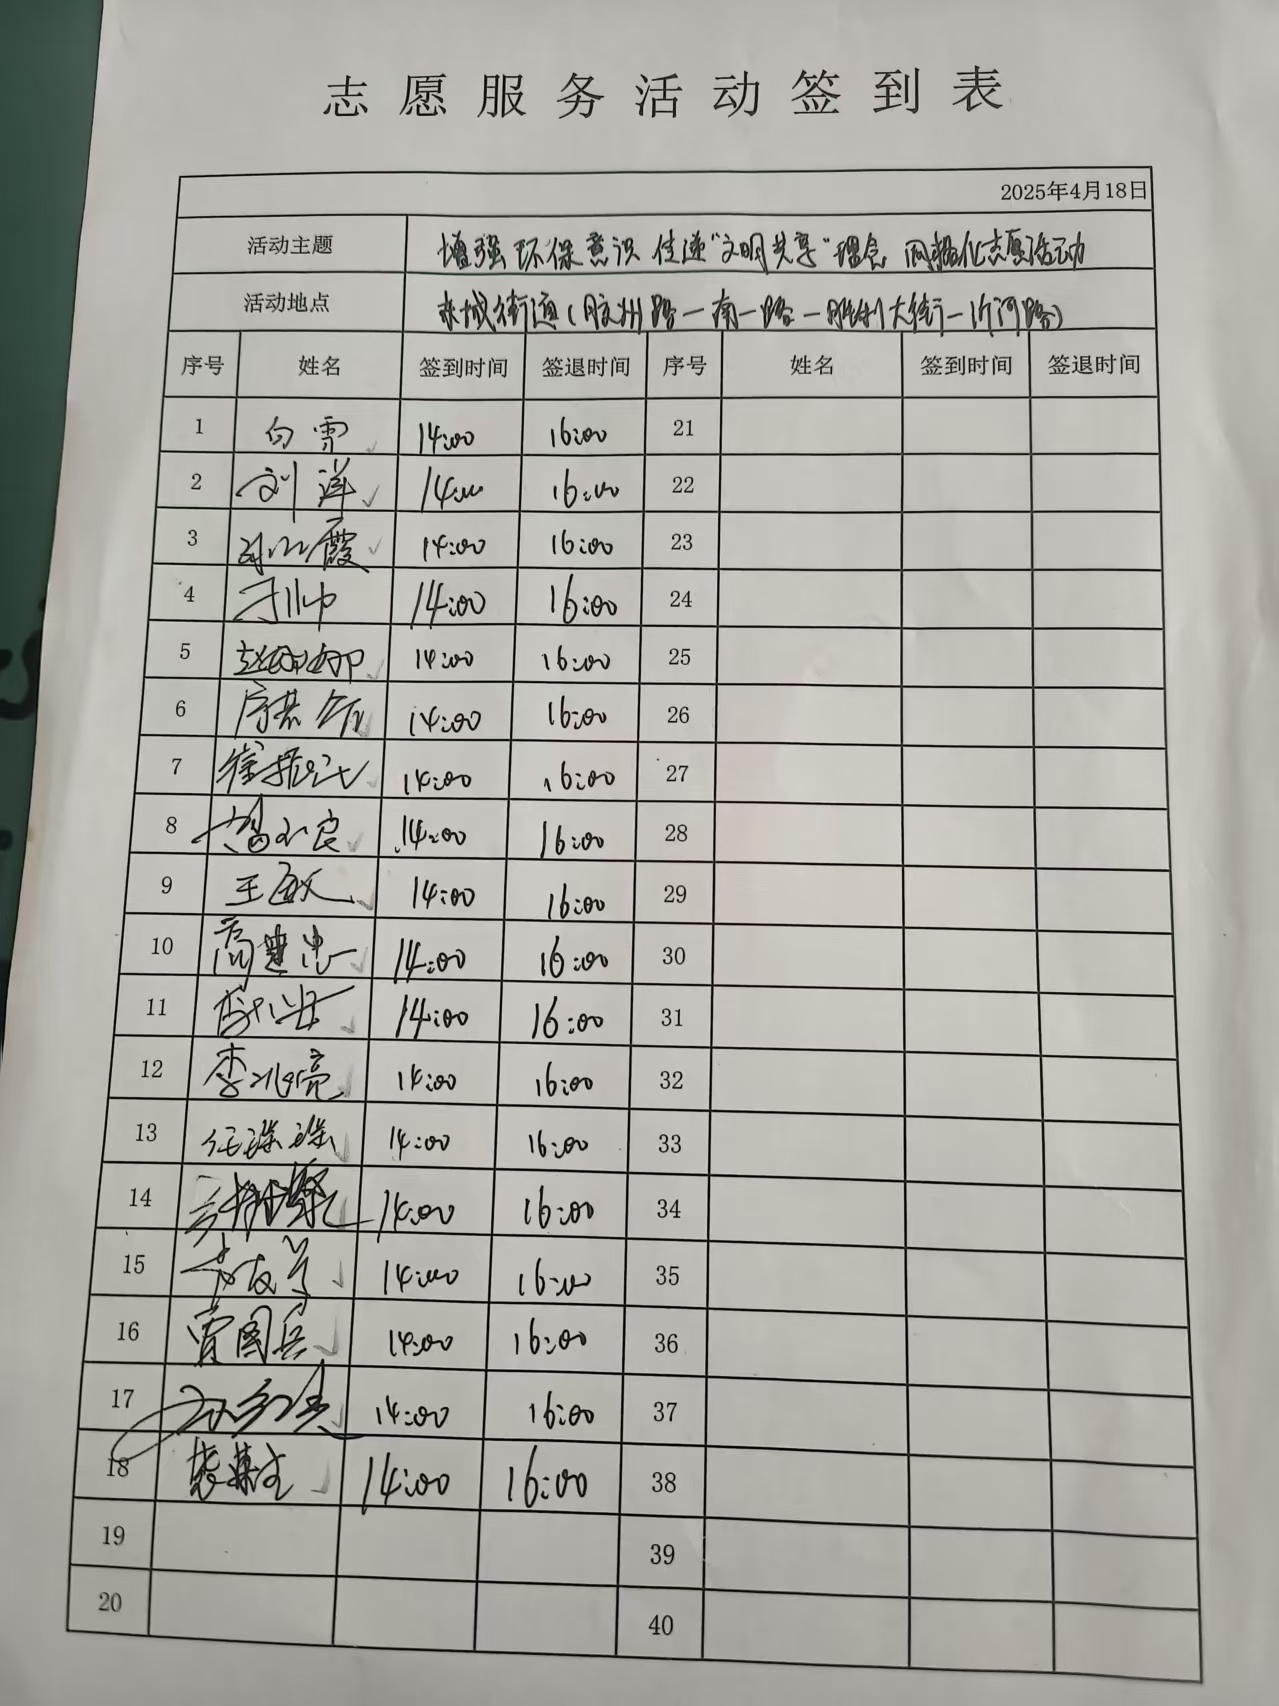 志愿服务活动签到表
2025年4月18日
活动主题 增强环保意识 传递"文明共享"理念 网格化志愿活动
活动地点 东城街道(胶州路一南一路一胜利大街一沂河路)
序号 姓名 签到时间 签退时间 序号 姓名 签到时间 签退时间
1 白雪 14:00 16:00 21
2 刘洋 14:00 16:00 22
3 霞 14:00 16:00 23
4 14:00 16:00 24
5 赵娜娜 14:00 16:00 25
6 14:00 16:00 26
7 14:00 16:00 27
8 良 14:00 16:00 28
9 王 14:00 16:00 29
10 高建忠 14:00 16:00 30
11 14:00 16:00 31
12 李 亮 14:00 16:00 32
13 任 14:00 16:00 33
14 14:00 16:00 34
15 14:00 16:00 35
16 贾国兵 14:00 16:00 36
17 14:00 16:00 37
18 14:00 16:00 38
19 39
20 40